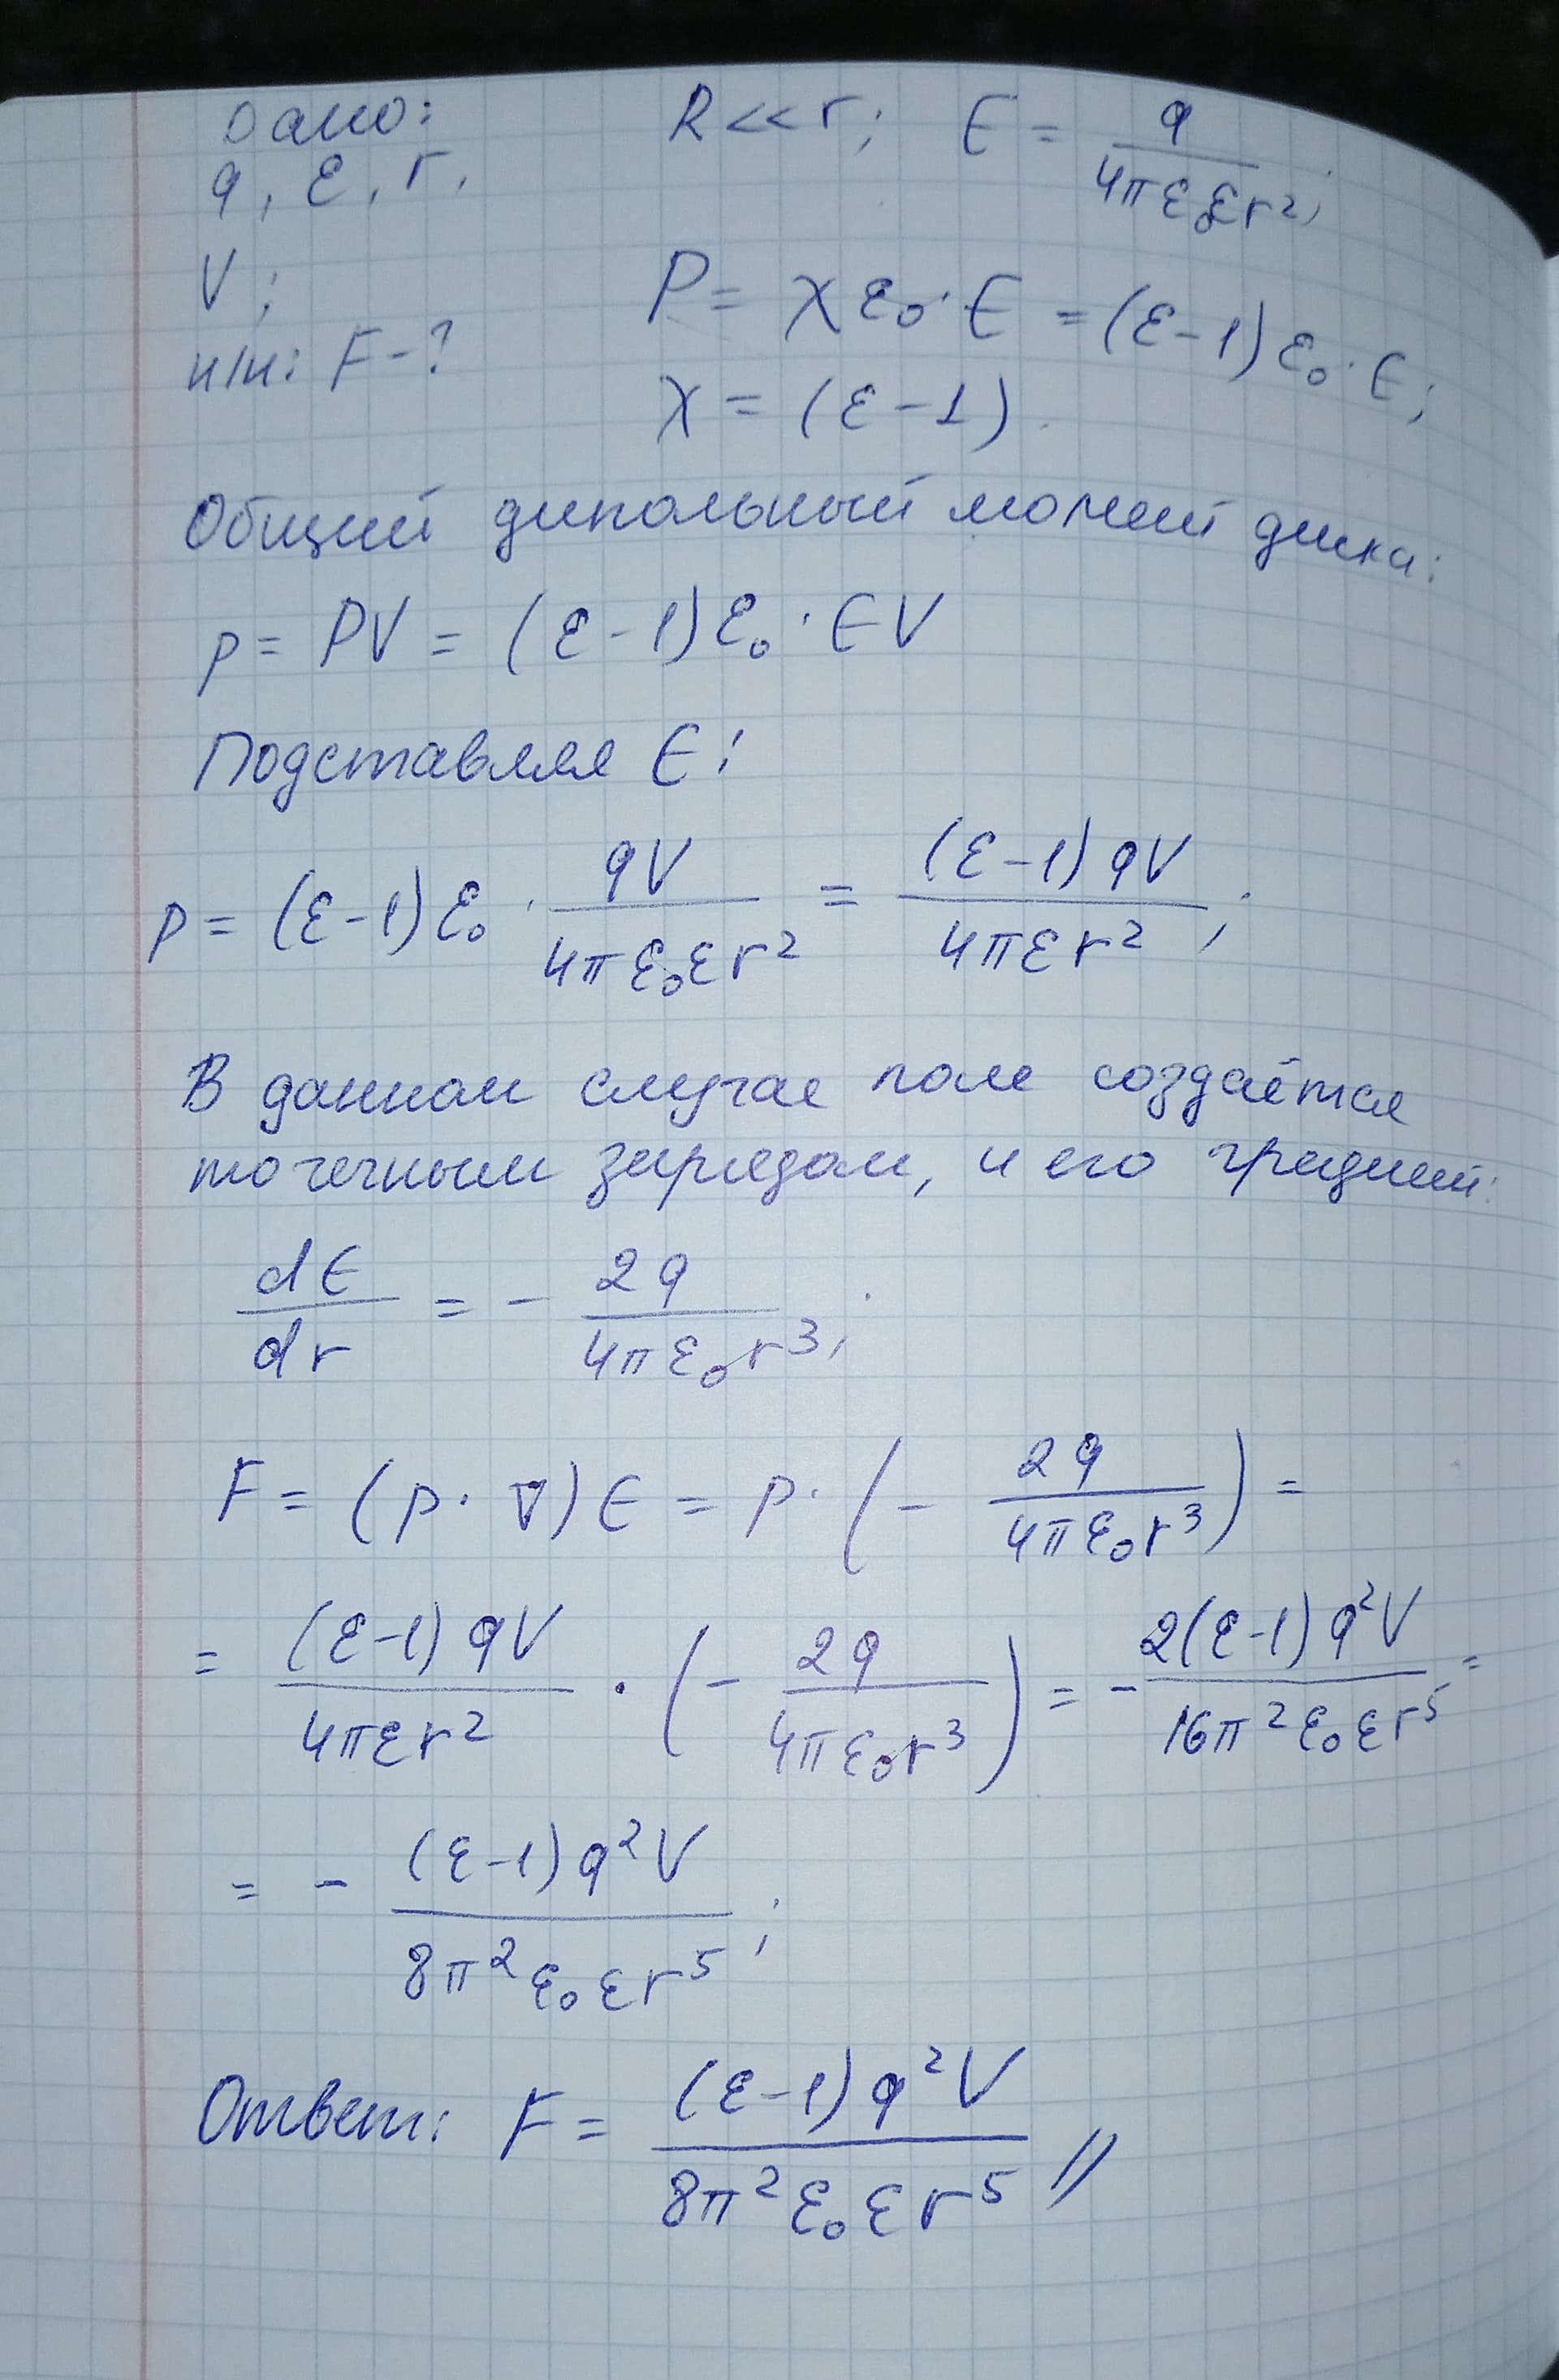 Дано:
q, ε, r,
V;
н/н: F-?
R << r; E = q / 4π ε ε₀ r²;
P = χ ε₀ · E = (ε-1) ε₀ · E;
χ = (ε-1).
Общий дипольный момент диска:
p = PV = (ε-1) ε₀ · EV
Подставляя E:
p = (ε-1) ε₀ · qV / 4π ε₀ ε r² = (ε-1) qV / 4π ε r²;
В данном случае поле создаётся
точечным зарядом, и его градиент:
dE / dr = - 2q / 4π ε₀ r³;
F = (p · ∇) E = p · (- 2q / 4π ε₀ r³) =
= (ε-1) qV / 4π ε r² · (- 2q / 4π ε₀ r³) = - 2(ε-1) q²V / 16π² ε₀ ε r⁵ =
= - (ε-1) q²V / 8π² ε₀ ε r⁵;
Ответ: F = (ε-1) q²V / 8π² ε₀ ε r⁵ //